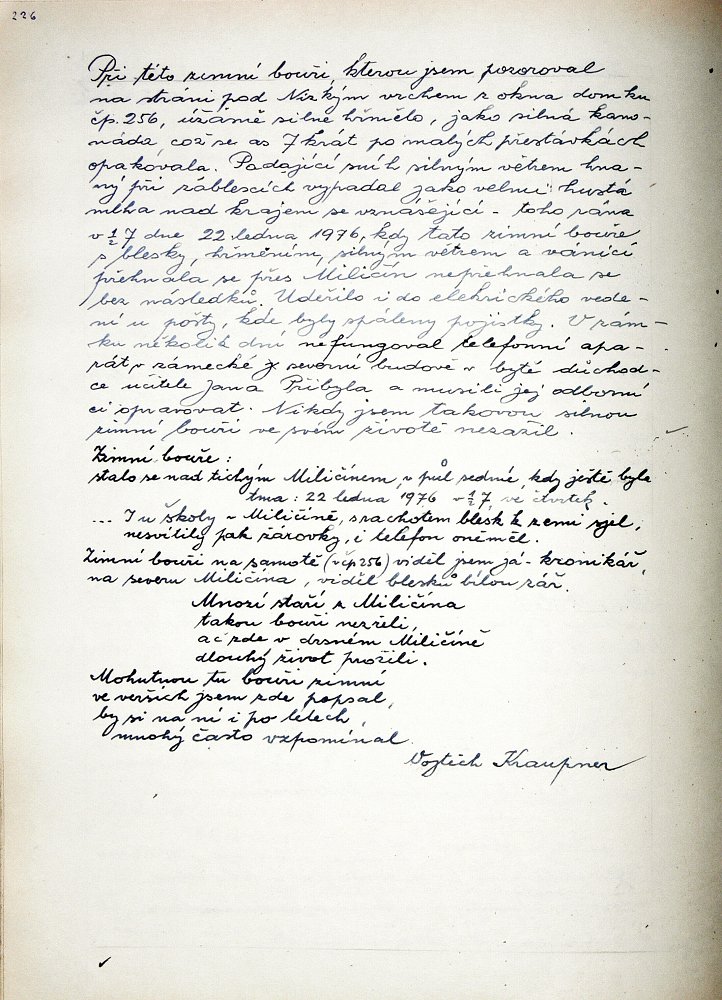 226
Při této zimní bouři, kterou jsem pozoroval
na stráni pod Nízkým vrchem z okna domku
čp. 256, úžasně silně hřmělo, jako silná kano-
náda, což se as 7 krát po malých přestávkách
opakovala. Padající sníh silným větrem hna-
ný při záblescích vypadal jako velmi hustá
mlha nad krajem se vznášející - toho rána
v ½ 7 dne 22 ledna 1976, kdy tato zimní bouře
s blesky, hřměním, silným větrem a vánicí
přehnala se přes Miličín nepřehnala se
bez následků. Udeřilo i do elektrického vede-
ní u pošty, kde byly spáleny pojistky. V rám-
ku několik dní nefungoval telefonní apa-
rát v zámecké severní budově v bytě důchod-
ce učitele Jana Přibyla a musili jej odborní
ci opravovat. Nikdy jsem takovou silnou
zimní bouři ve svém životě nezažil.
Zimní bouře:
stalo se nad tichým Miličínem, v půl sedmé, kdy ještě byla
tma: 22 ledna 1976 v ½ 7, ve čtvrtek.
... I u školy v Miličíně, s rachotem blesk k zemi sjel,
nesvítily pak žárovky, i telefon oněměl.
Zimní bouři na samotě (v čp 256) viděl jsem já - kronikář,
na severu Miličína, viděl blesků bílou zář.
Mnozí staří z Miličína
takou bouři nezřeli,
ač zde v drsném Miličíně
dlouhý život prožili.
Mohutnou tu bouři zimní
ve verších jsem zde popsal,
by si na ní i po letech,
mnohý často vzpomínal.
Vojtěch Kraupner